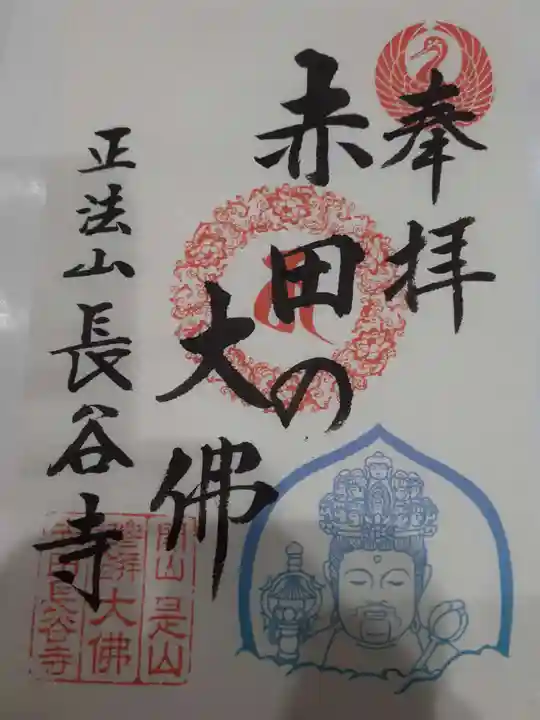 奉拝
赤田の
大佛
正法山長谷寺
開山是山
大佛
長谷寺